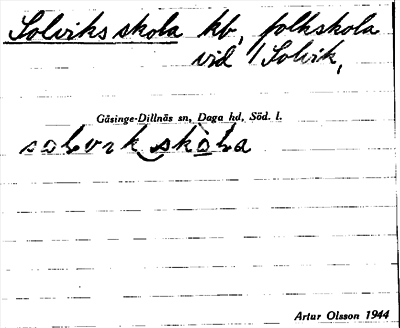 Solviks skola kb, folkskola
vid Solvik,
Gåsinge-Dillnäs sn, Daga hd, Söd. l.
Artur Olsson 1944